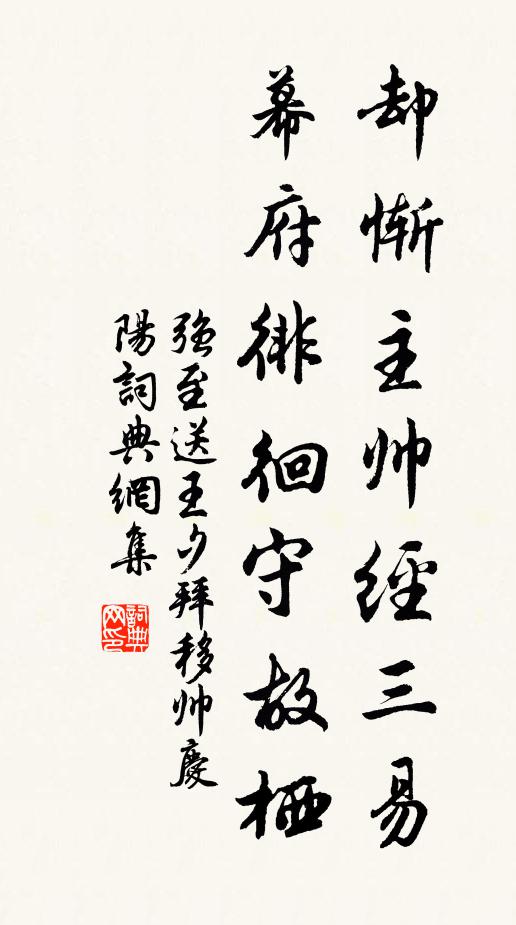 却慚主帅經三易
幕府徘徊守故栖
強至送王夕拜移帅慶
陽詞典網集
詞典
网印